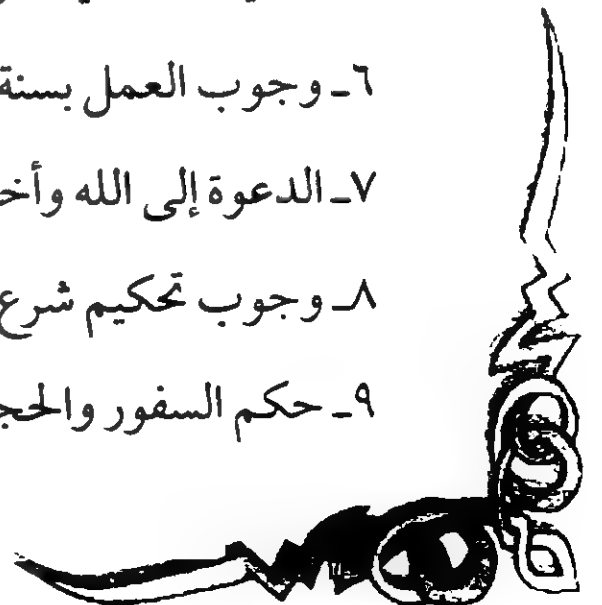 ٦ـ وجوب العمل بسنة
٧ـ الدعوة إلى الله وأخ
٨ـ وجوب تحكيم شرع
٩ـ حكم السفور والحج